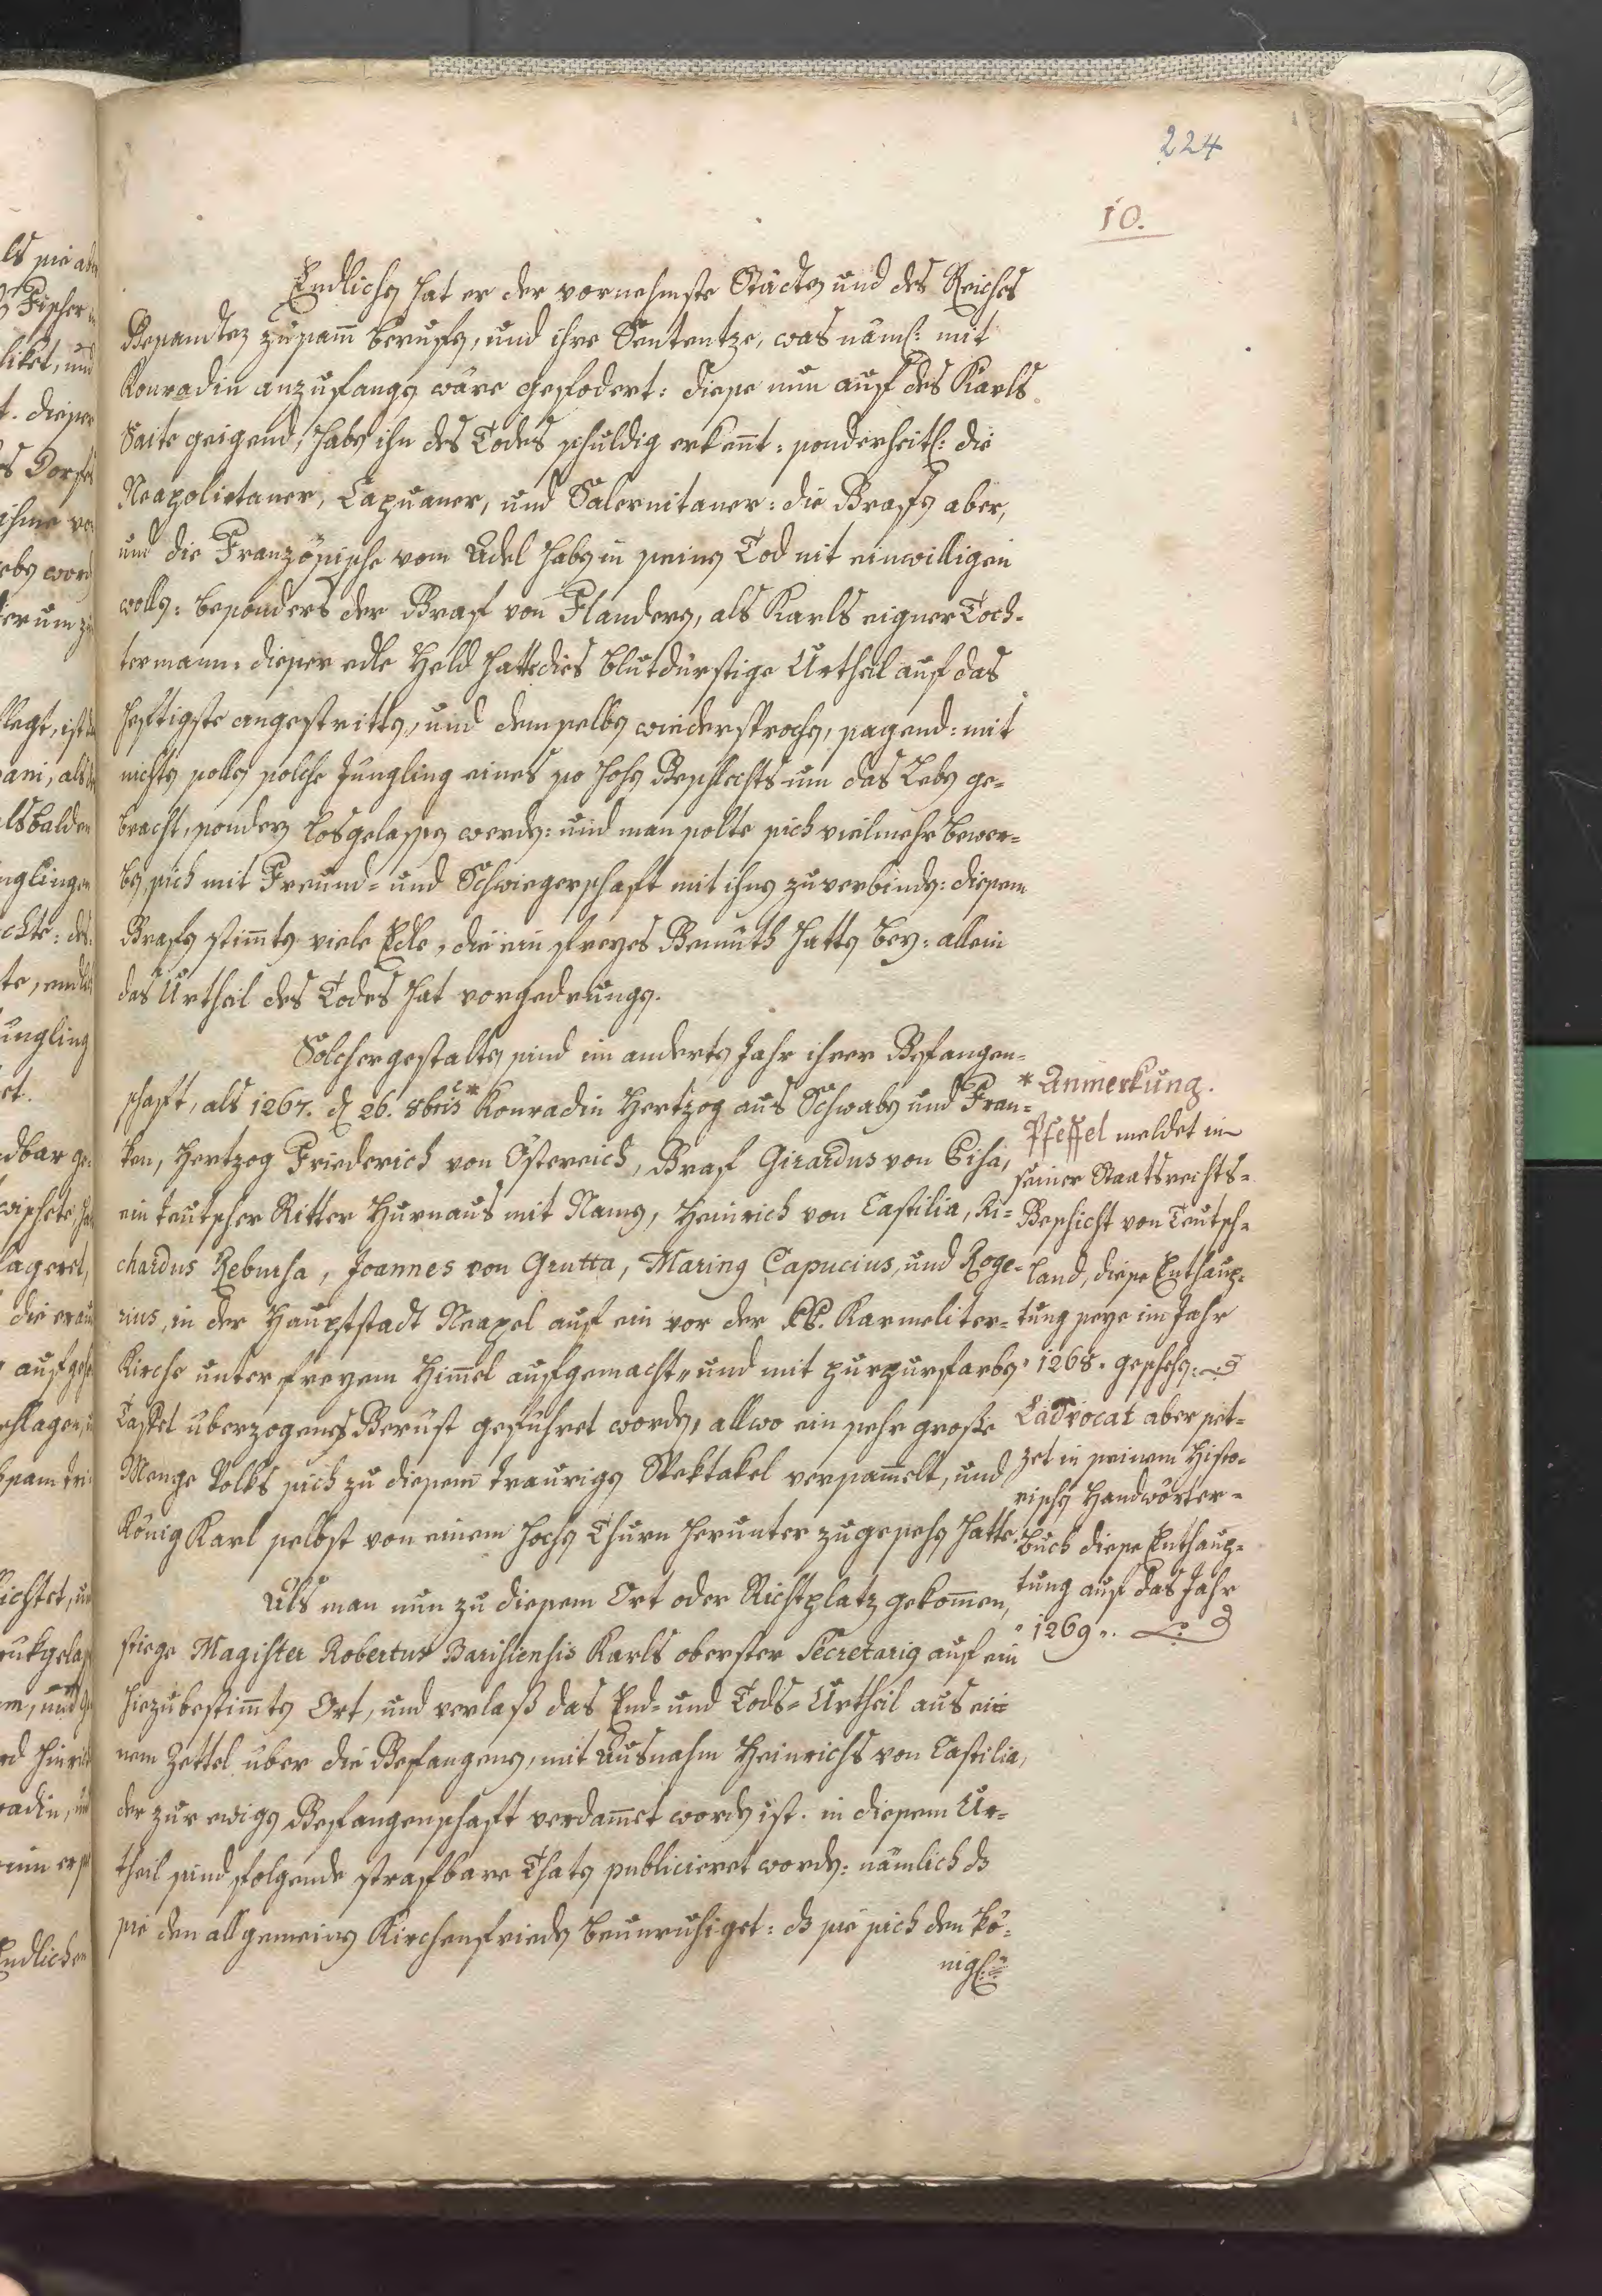 224
10.
Endlichen hat er der vornehmste Städten und des Reiches
Gesandten zusam̄ berufen, und ihre Sententze, was näml: mit
Konradin anzufangen wäre gefodert: diese nun auf des Karls
Saite geigend, haben ihn des Todes schuldig erken̄t: sonderheitl: die
Neapolietaner, Capuaner, und Salernitaner: die Grafen aber,
und die Französische vom Adel haben in seinen Tod nit einwilligen
wollen: besonders der Graf von Flandern, als Karls eigner Toch-
termann. dieser edle Held hatte dies blutdürstige Urtheil auf das
heftigste angestritten, und demselben wiedersprochen, sagend: mit
nichten sollen solche Jüngling eines so hohen Geschlechts um das Leben ge-
bracht, sondern losgelassen werden: und man solte sich vielmehr bewer-
ben, sich mit Freund- und Schwiegerschaft mit ihnen zuverbinden: diesem
Grafen stim̄ten viele Edle, die ein freyes Gemüth hatten bey: allein
das Urtheil des Todes hat vorgedrungen.
Solchergestalten sind im anderten Jahr ihrer Gefangen-
schaft, als 1267. d 26. 8bris * Konradin Hertzog aus Schwaben und Fran-
ken, Hertzog Friederich von Östereich, Graf Girardus von Pisa,
ein teutscher Ritter Hurnaus mit Namen, Heinrich von Castilia, Ri-
chardus Rebursa, Joannes von Grutta, Marinus Capucius, und Roge-
rius, in der Hauptstadt Neapel auf ein vor der PP. Karmeliter-
Kirche unter freyem Him̄el aufgemacht- und mit purpurfarben
Taffet überzogenes Gerüst geführet worden, allwo ein sehr große
Menge Volks sich zu diesem traurigen Spektakel versam̄elt, und
König Karl selbst von einem hochen Thurn herunter zugesehen hatte.
Als man nun zu diesem Ort oder Richtplatz gekom̄en,
stiege Magister Robertus Barisiensis Karls oberster Secretarius auf ein
hiezubestim̄ten Ort, und verlaß das End- und Tods-Urtheil aus ei-
nem Zettel über die Gefangenen, mit Ausnahm Heinrichs von Castilia,
der zur ewigen Gefangenschaft verdam̄et worden ist. in diesem Ur-
theil sind folgende strafbare Thaten publicieret worden: nämlich dß
sie den allgemeinen Kirchenfrieden beunruhiget: dß sie sich den kö-
nigl:
* Anmerkung.
Pfeffel meldet in
seiner Staatsrechts-
Geschicht von Teutsch-
land, diese Enthaup-
tung seye im Jahr
1268. geschehen:
Ladvocat aber set-
zet in seinem Histo-
rischen Handwörter-
buch diese Enthaup-
tung auf das Jahr
1269.